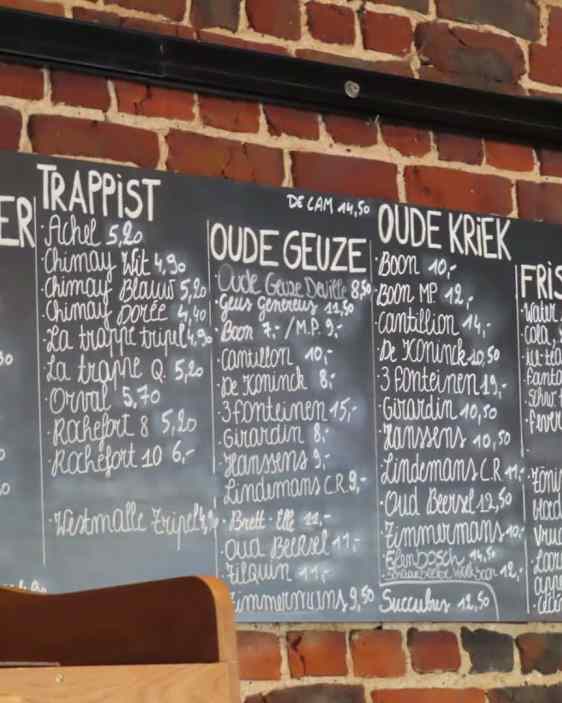 ER
TRAPPIST
· Achel 5,20
· Chimay Wit 4,90
· Chimay Blauw 5,20
· Chimay Dorée 4,40
· La trappe tripel 4,90
· La trappe Q. 5,20
· Orval 5,70
· Rochefort 8 5,20
· Rochefort 10 6,-
· Westmalle Tripel
DE CAM 14,50
OUDE GEUZE
· Oude Geuze Deville 8,50
· Geus Genereus 12,50
· Boon 7.- / M.P. 9,-
· Cantillon 10,-
· De Koninck 8,-
· 3 Fonteinen 15,-
· Girardin 8,-
· Hanssens 9,-
Lindemans C.R 9,-
· Brett-Elle 11,-
· Oud Beersel 11,-
· Tilquin 11,-
Zimmermans 9,50
OUDE KRIEK
· Boon 10,-
· Boon MP 12,-
· Cantillion 14,-
· De Koninck 10,50
· 3 Fonteinen 19,-
· Girardin 10,50
· Hanssens 10,50
Lindemans C.R 11,-
· Oud Beersel 12,50
· Zimmermans 10,-
14,50
12,-
Succubus 12,50
FRIS
Water
Cola